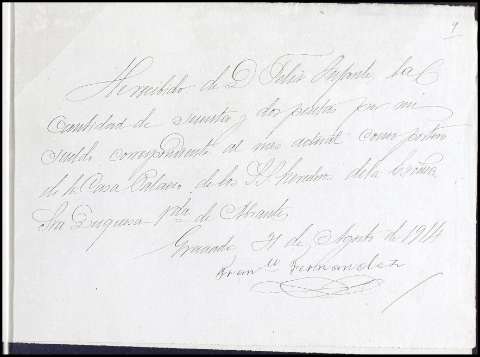 9
He recibido de D. Felix Infante la
Cantidad de y dos pesetas por mi
sueldo correspondiente al mes actual como portero
de la Casa Palacio de los SS. herederos de la Excma.
Sra Duquesa Vda de Abrantes
Granada 31 de Agosto de 1914
Francco Fernandez